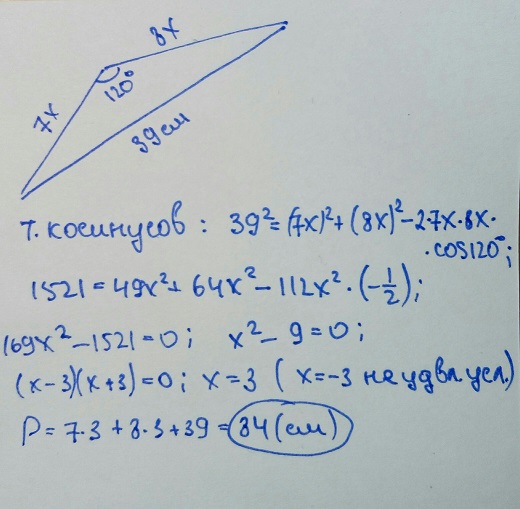 8x
7x
120°
39 см
Т. косинусов : 39² = (7x)² + (8x)² - 2·7x·8x·
·cos120°;
1521 = 49x² + 64x² - 112x² · (-1/2);
169x² - 1521 = 0; x² - 9 = 0;
(x-3)(x+3) = 0; x = 3 ( x=-3 не удвл. усл.)
P = 7·3 + 8·3 + 39 = 84 (см)